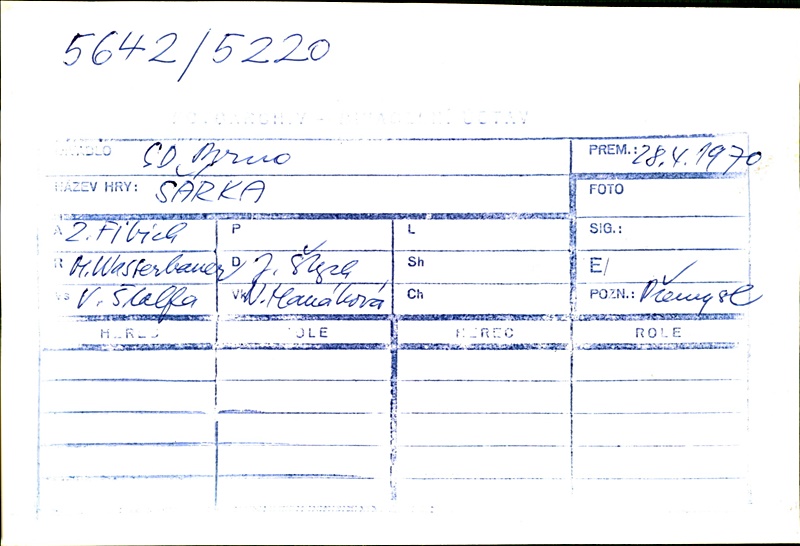 5642/5220
DIVADLO SD Brno PREM.: 28.4.1970
NÁZEV HRY: ŠÁRKA FOTO
A Z. Fibich P L SIG.:
R M. Wasserbauer D J. Štych Sh E/
Vs V. Štolfa Vk V. Hanáková Ch POZN.: Přemysl
HEREC ROLE HEREC ROLE